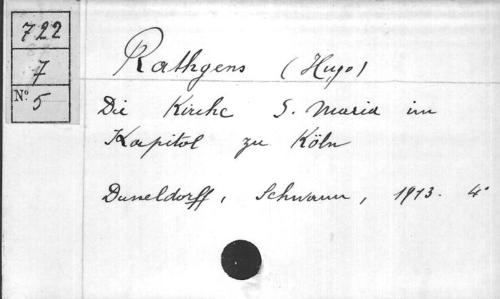 722
7
N° 5
Rathgens (Hugo)
Die Kirche S. Maria im
Kapitol zu Köln
Dusseldorff, Schwann, 1913. 4°